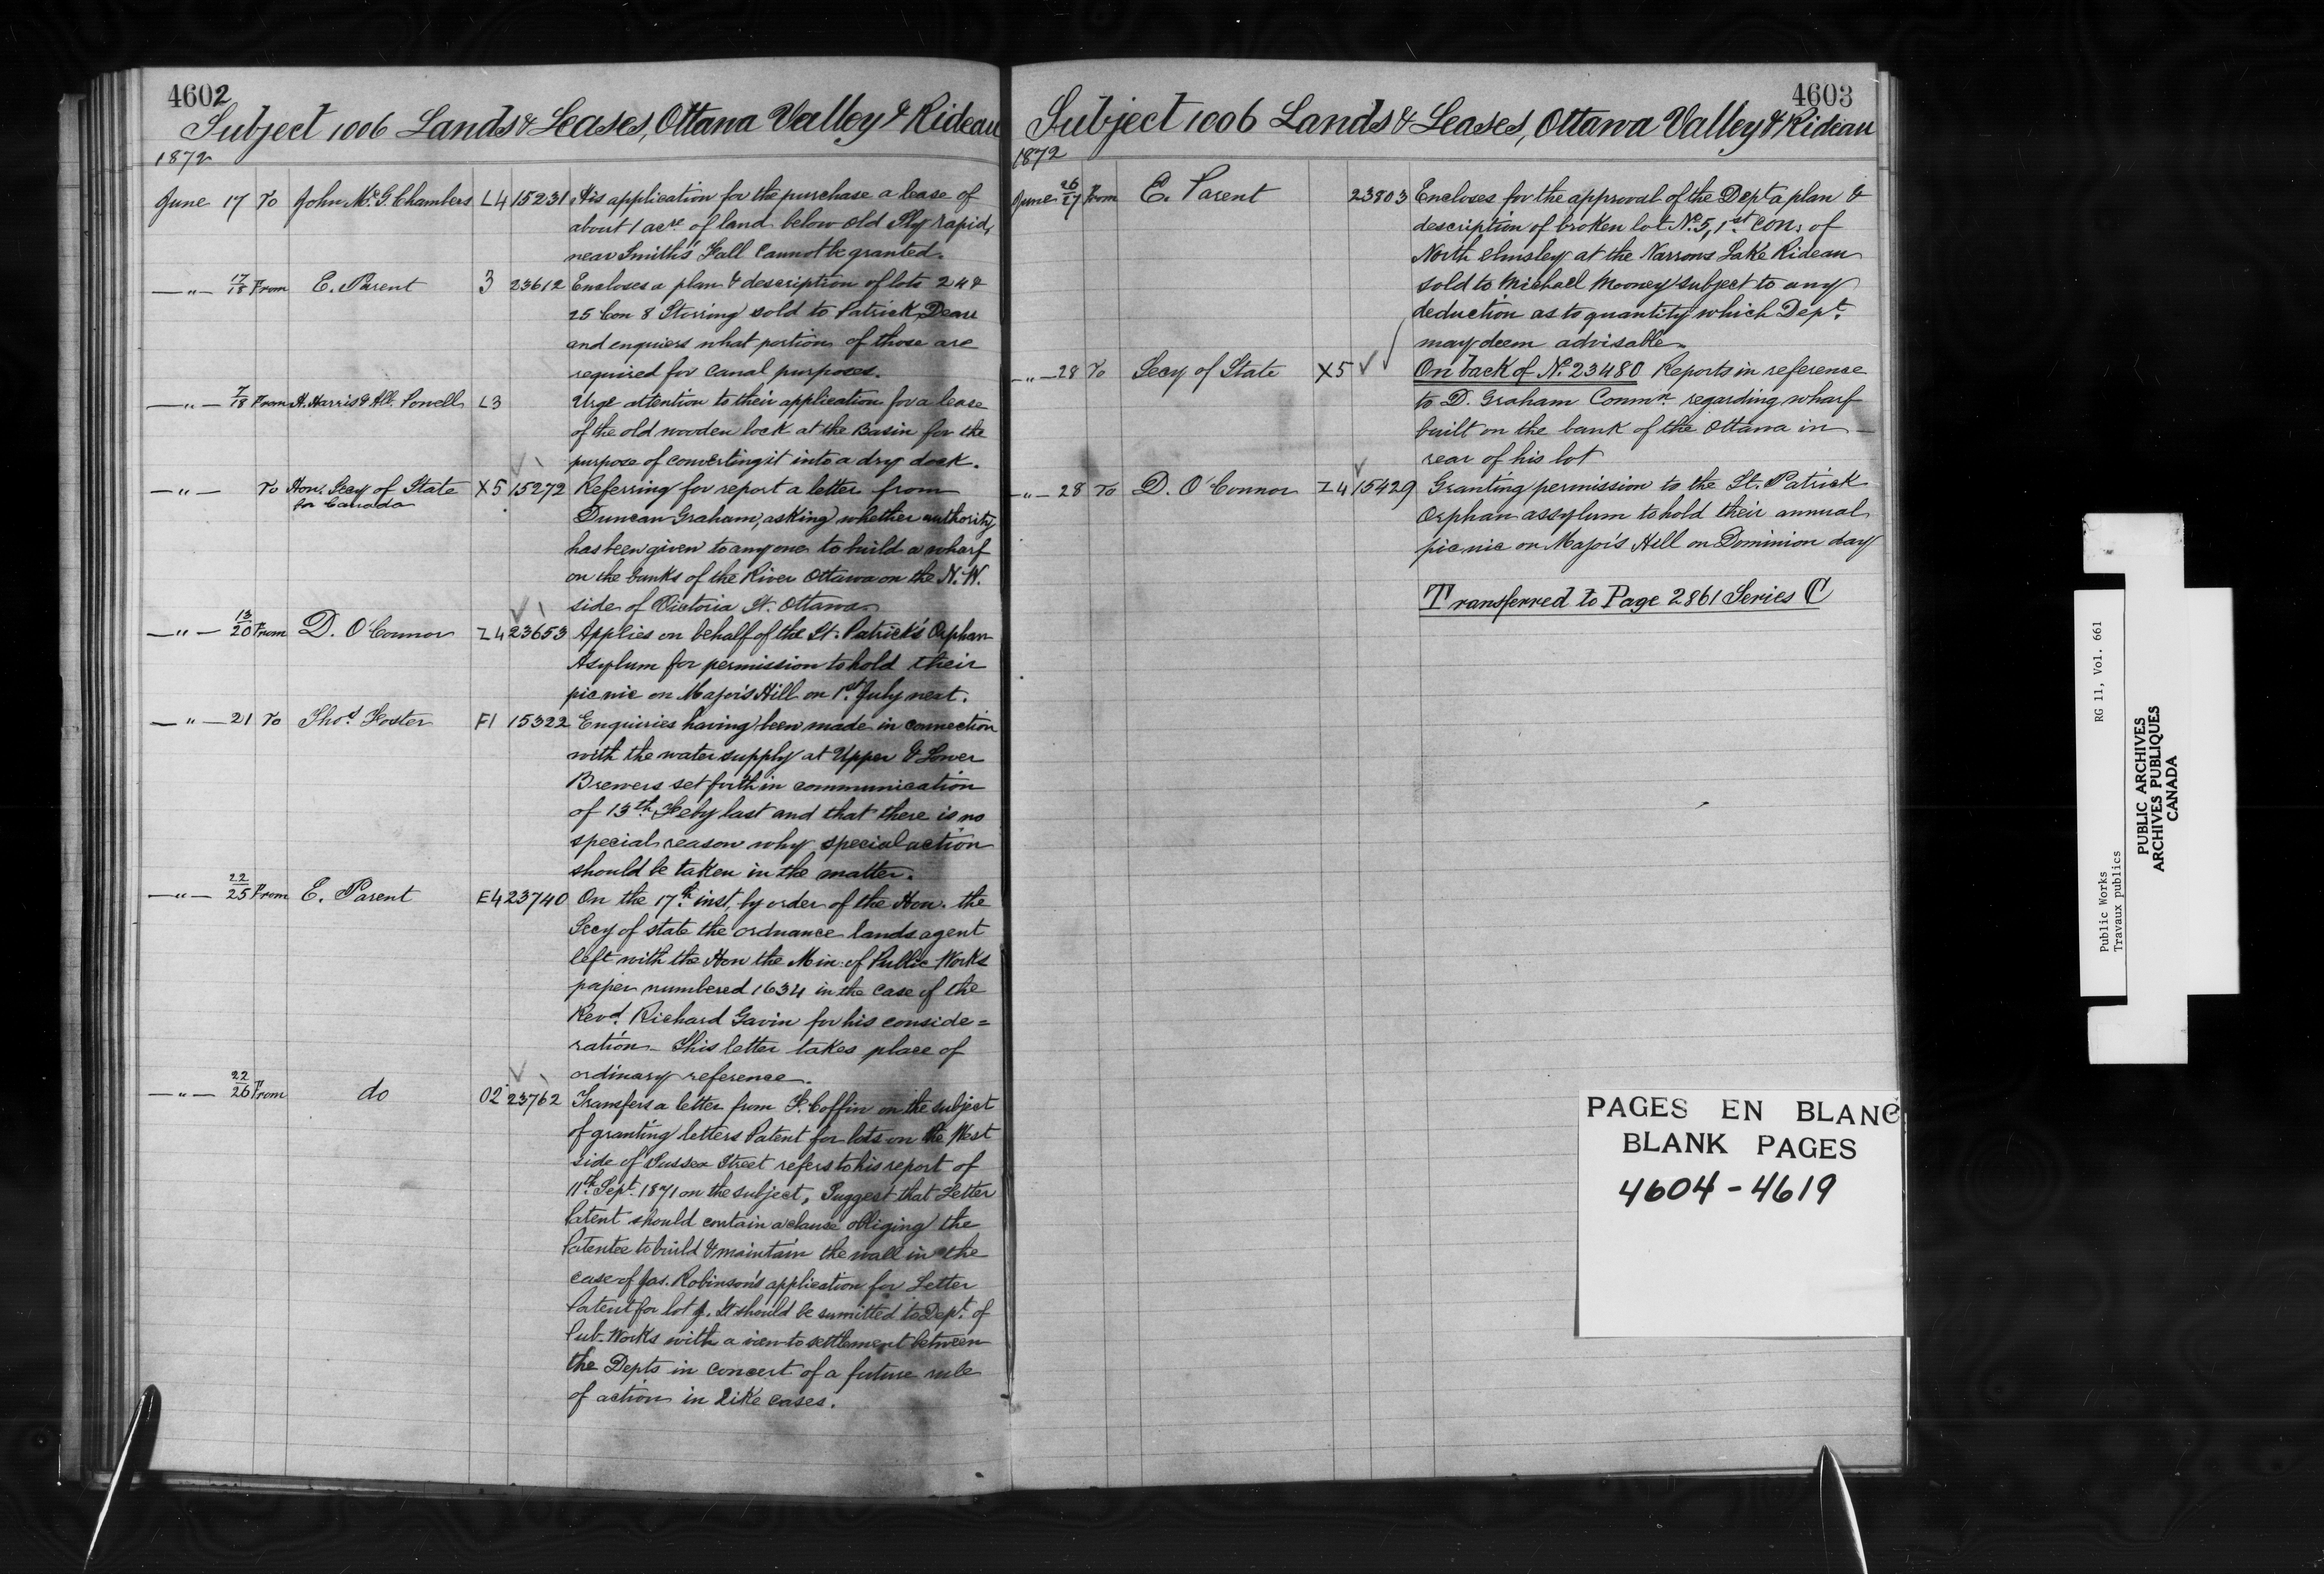 4602
Subject 1006 Lands & Leases, Ottawa Valley & Rideau
1872
June 17 To John McG. Chambers L4 15231 His application for the purchase a lease of
about 1 acre of land below old Sly rapid,
near Smith's Fall Cannot be granted.
—"— 17/18 From E. Parent 3 23612 Encloses a plan & description of lots 24 &
25 Con 8 Storring sold to Patrick
and enquires what portions of those are
required for Canal purposes.
—"— 7/18 From H. Harris & All. Powell L3 Urge attention to their application for a lease
of the old wooden lock at the Basin for the
purpose of converting it into a dry dock.
—"— To Hon. Secy of State X5 15272 Referring for report a letter from
for Canada
Duncan Graham, asking whether authority
has been given to any one to build a wharf
on the banks of the River Ottawa on the N.W.
side of Victoria St. Ottawa
—"— 13/20 From D. O'Connor Z4 23653 Applies on behalf of the St. Patrick's Orphan
Asylum for permission to hold their
pic nic on Major's Hill on 1st July next.
—"— 21 To Thos Foster F1 15322 Enquiries having been made in connection
with the water supply at Upper & Lower
Brewers set forth in communication
of 13th Feby last and that there is no
special reason why special action
should be taken in the matter.
—"— 22/25 From E. Parent E4 23740 On the 17th inst, by order of the Hon. the
Secy of state the ordnance lands agent
left with the Hon the Min: of Public Works
paper numbered 1634 in the case of the
Revd. Richard Gavin for his conside=
ration – This letter takes place of
ordinary reference.
—"— 22/26 From do O2 23762 Transfers a letter from F. Coffin on the subject
of granting letters Patent for lots on the West
side of Sussex Street refers to his report of
11th Sept. 1871 on the subject, Suggest that Letter
Patent should contain a clause obliging the
Patentee to build & maintain the wall in the
case of Jas. Robinson's application for Letter
Patent for lot It should be sumitted to Dept. of
Pub. Works with a view to settlement between
the Depts in concert of a future rule
of action in like cases.
4603
Subject 1006 Lands & Leases, Ottawa Valley & Rideau
1872
June 26/27 From E. Parent 23803 Encloses for the approval of the Dept a plan &
description of broken lot No. 5, 1st Con. of
North Elmsley at the Narrows Lake Rideau
sold to Michael Mooney subject to any
deduction as to quantity which Dept.
may deem advisable.
—"— 28 To Secy of State X5 On back of No. 23480 Reports in reference
to D. Graham Commn. regarding wharf
built on the bank of the Ottawa in
rear of his lot
—"— 28 To D. O'Connor Z4 15429 Granting permission to the St. Patrick
Orphan assylum to hold their annual
pic nic on Major's Hill on Dominion day
Transferred to Page 2861 Series C
PAGES EN BLANC
BLANK PAGES
4604 - 4619
Public Works RG 11, Vol. 661
Travaux publics
PUBLIC ARCHIVES
ARCHIVES PUBLIQUES
CANADA